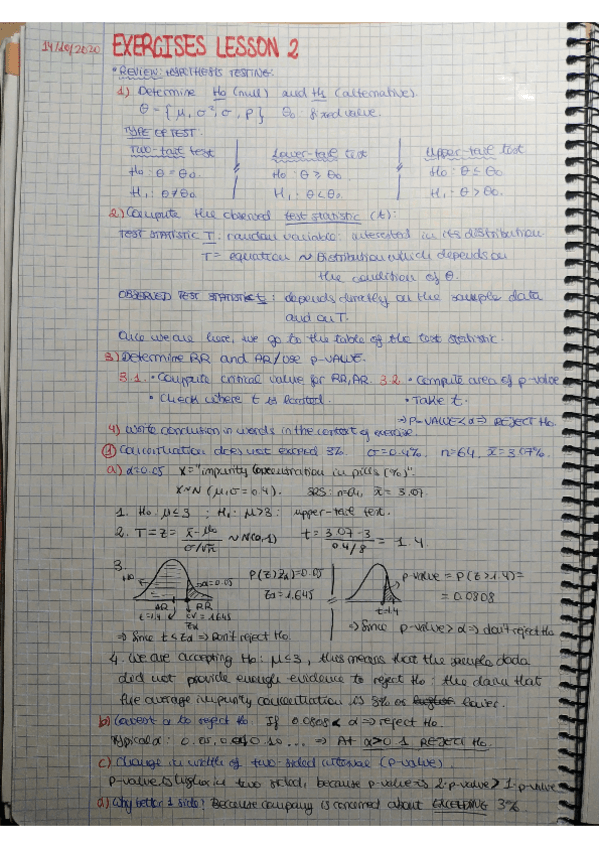 14/10/2020 EXERCISES LESSON 2
• REVIEW: HYPOTHESIS TESTING:
1) Determine H0 (null) and H1 (alternative).
θ = {μ, σ², σ, p} θ0: fixed value.
TYPE OF TEST:
Two-tail test Lower-tail test Upper-tail test
H0: θ = θ0 H0: θ ≥ θ0 H0: θ ≤ θ0
H1: θ ≠ θ0 H1: θ < θ0 H1: θ > θ0.
2) Compute the observed test statistic (t):
TEST STATISTIC T: random variable: interested in its distribution
T = equation ~ Distribution which depends on
the condition of θ.
OBSERVED TEST STATISTIC t: depends directly on the sample data
and on T.
Once we are here, we go to the table of the test statistic.
3) Determine RR and AR/use p-VALUE.
3.1. • Compute critical value for RR, AR. 3.2. • Compute area of p-value
• Check where t is located. • Take t.
⇒ P-VALUE < α ⇒ REJECT H0.
4) Write conclusion in words in the context of exercise.
1 Concentration does not exceed 3%. σ = 0.4%, n = 64, x̄ = 3.07%.
a) α = 0.05 X = "impurity concentration in pills (%)"
X ~ N (μ, σ = 0.4). SRS: n = 64, x̄ = 3.07.
1. H0: μ ≤ 3 ; H1: μ > 3: upper-tail test.
2. T = Z = x̄ - μ0 / σ/√n ~ N(0,1) t = 3.07 - 3 / 0.4/8 = 1.4
3. H0 α = 0.05 P(Z > Zα) = 0.05 p-value = P(Z > 1.4) =
AR RR Zα = 1.645 = 0.0808
t = 1.4 CV = 1.645 t = 1.4
Zα
⇒ Since t < Zα ⇒ Don't reject H0 ⇒ Since p-value > α ⇒ don't reject H0
4. We are accepting H0: μ ≤ 3, this means that the sample data
did not provide enough evidence to reject H0: the claim that
the average impurity concentration is 3% or lower.
b) Lowest α to reject H0. If 0.0808 < α ⇒ reject H0.
Typical α: 0.05, 0.10 ... ⇒ At α > 0.1 REJECT H0.
c) Change in width of two-sided interval (p-value).
p-value is higher in two sided, because p-value is 2·p-value > 1·p-value
d) Why better 1 side? Because company is concerned about EXCEEDING 3%.